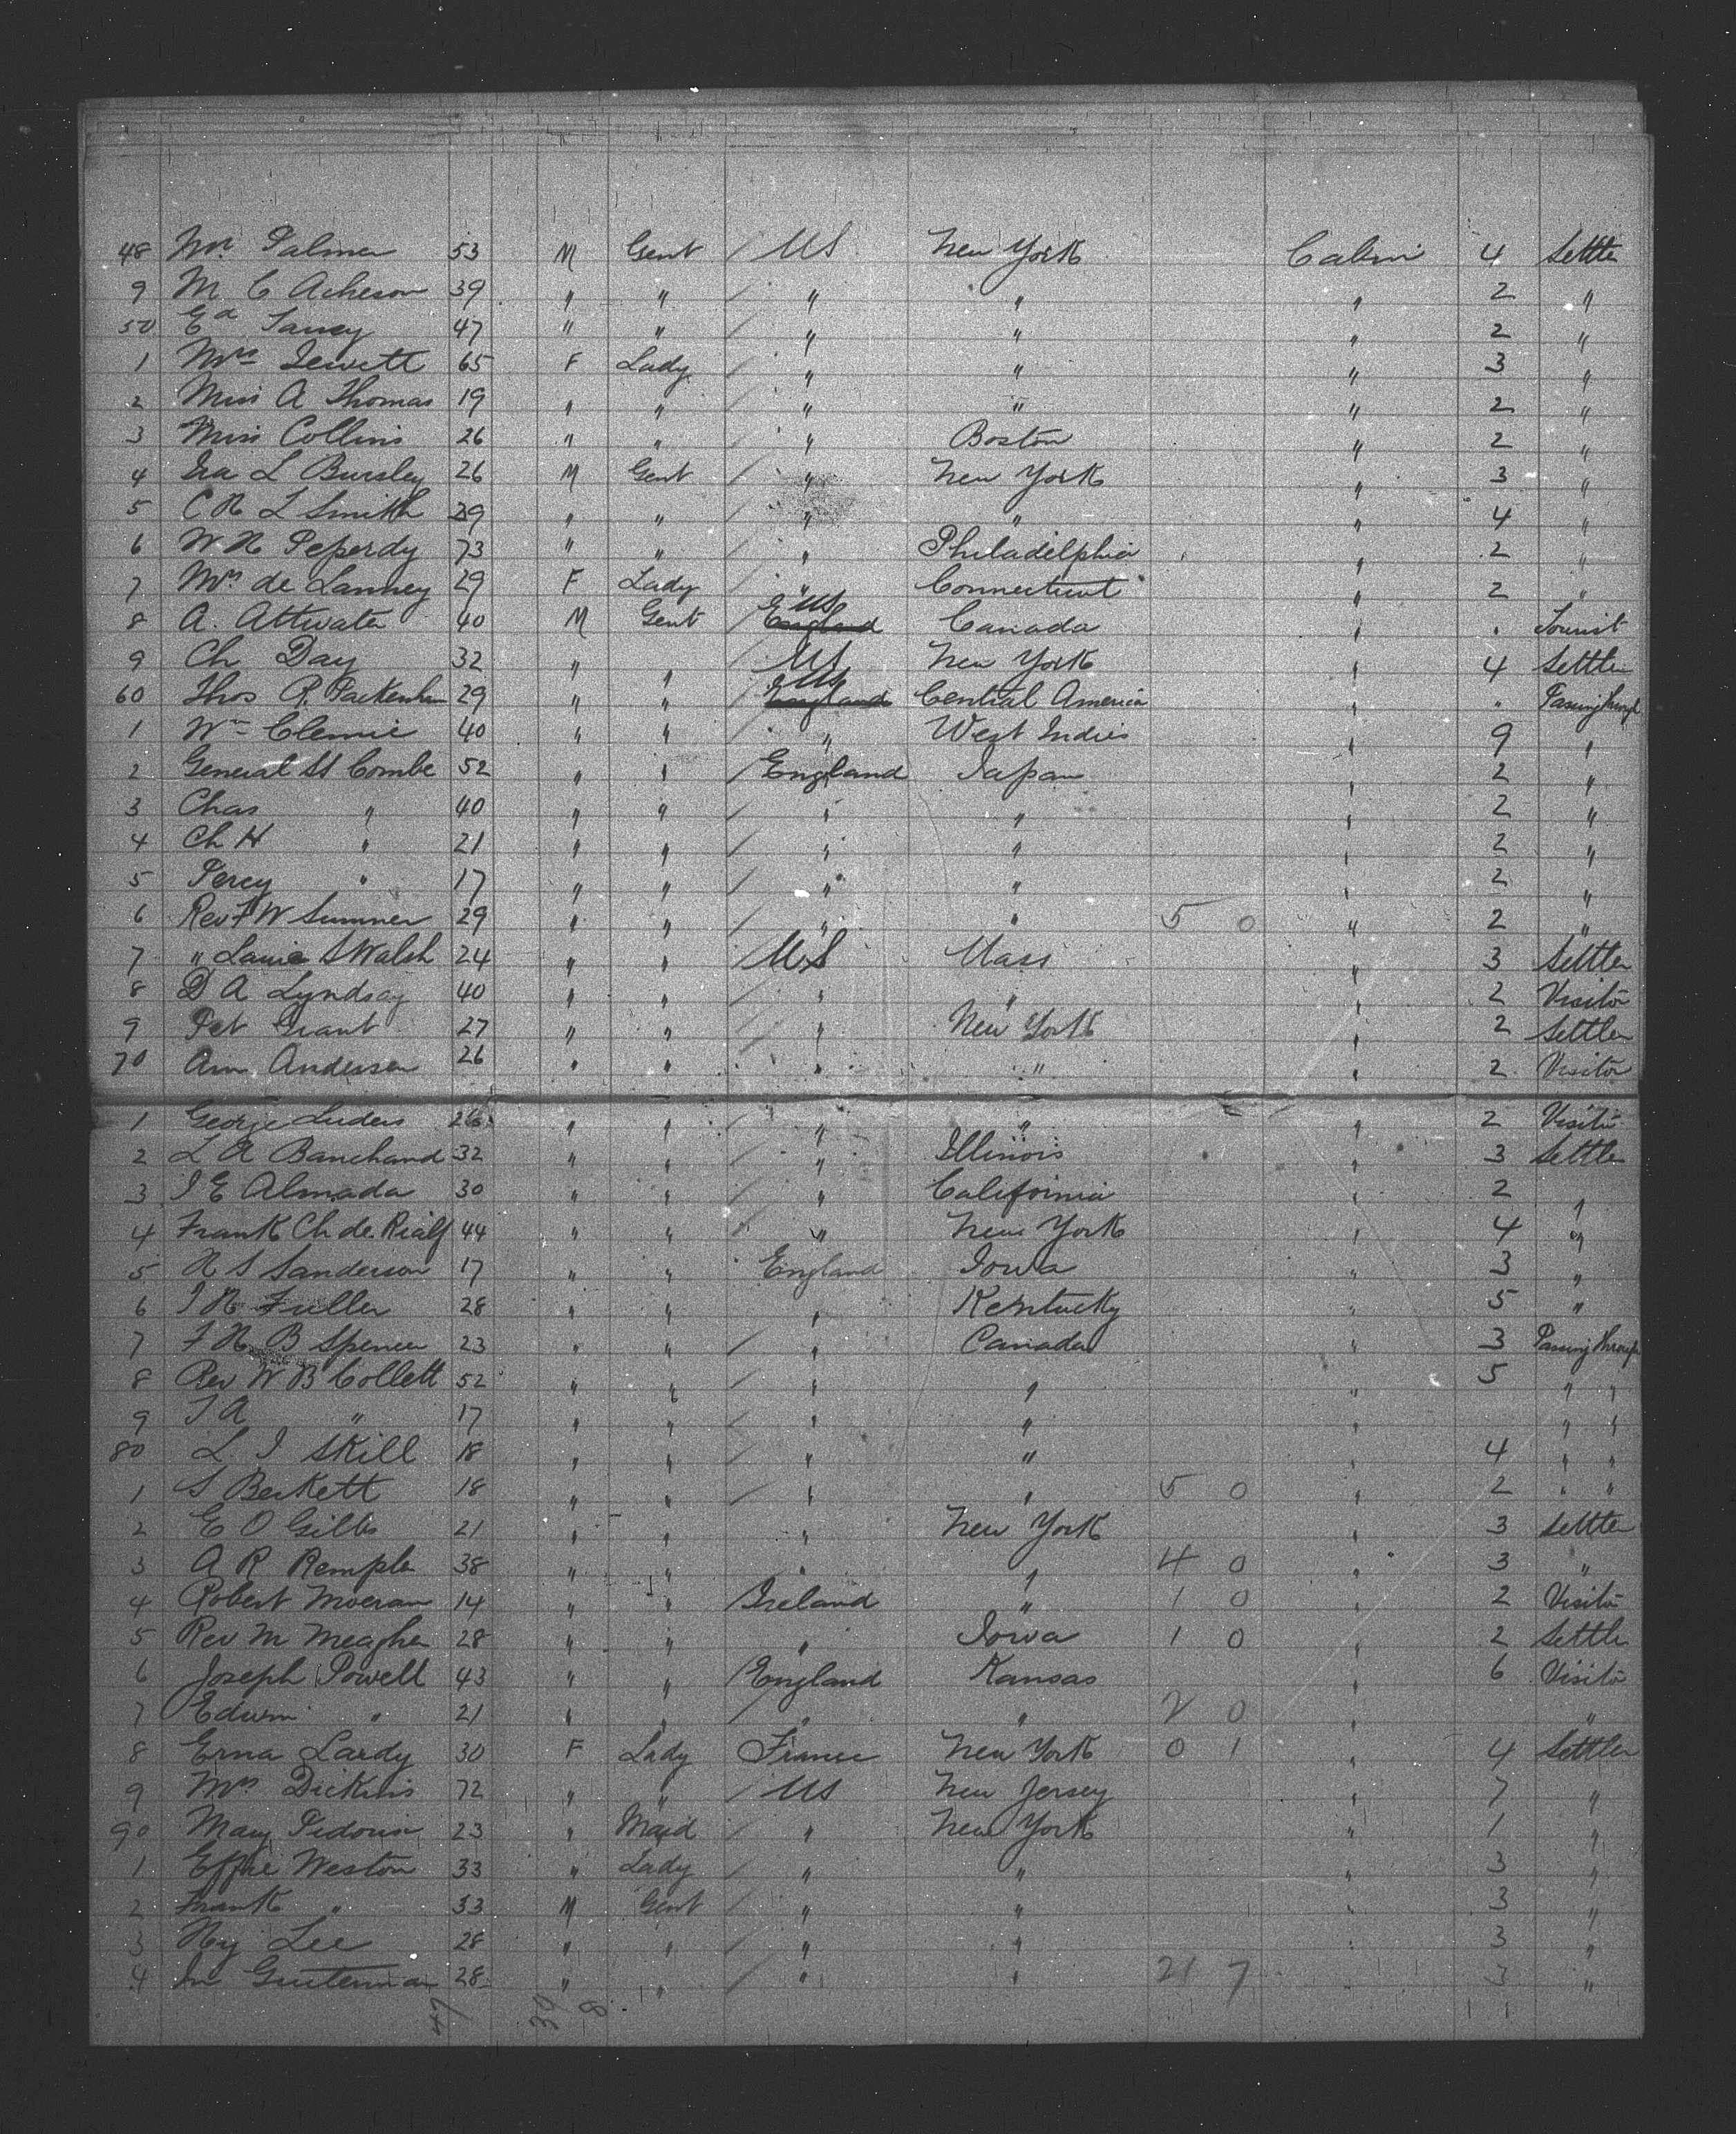 48 Mr. Palmer 53 M Gent / US New York Cabin 4 Settler
9 M C Acheson 39 " " / " " " 2 "
50 Ed 47 " " / " " " 2 "
1 Mrs Jewett 65 F Lady / " " " 3 "
2 Miss A Thomas 19 " " / " " " 2 "
3 Miss Collins 26 " " / " Boston " 2 "
4 Ira L Bursley 26 M Gent / " New York " 3 "
5 C H L Smith 29 " " / " " " 4 "
6 W H Peperdy 73 " " / " Philadelphia " 2 "
7 Mrs de Lanney 29 F Lady / " Connecticut " 2 "
8 A. Attwater 40 M Gent / England US Canada " " Tourist
9 Ch Day 32 " " / US New York " 4 Settler
60 Thos R. Packenham 29 " " / England US Central America " " Passing through
1 Wm Clemie 40 " " / " West Indies " 9 "
2 General St Combe 52 " " / England Japan " 2 "
3 Chas " 40 " " / " " " 2 "
4 Ch H " 21 " " / " " " 2 "
5 Percy " 17 " " / " " " 2 "
6 Rev F W Sumner 29 " " / " " 5 0 " 2 "
7 " S Walsh 24 " " / US Mass " 3 Settler
8 D A Lyndsay 40 " " / " " " 2 Visitor
9 Pet Grant 27 " " / " New York " 2 Settler
70 Andersen 26 " " / " " " 2 Visitor
1 George Luders 26 " " / " " " 2 Visitor
2 L A Banchand 32 " " / " Illinois " 3 Settler
3 J E Almada 30 " " / " California " 2 "
4 Frank Ch de Rialf 44 " " / " New York " 4 "
5 H S Sanderson 17 " " England Iowa " 3 "
6 J H Fuller 28 " " " Kentucky " 5 "
7 F H B Spencer 23 " " / " Canada " 3 Passing through
8 Rev W B Collett 52 " " / " " " 5 " "
9 J A " 17 " " / " " " " "
80 L. J Skill 18 " " / " " " 4 " "
1 S Beckett 18 " " / " " 5 0 " 2 " "
2 E O Gibbs 21 " " " New York " 3 Settler
3 A R Rempler 38 " " " " 4 0 " 3 "
4 Robert Moeran 14 " " / Ireland " 1 0 " 2 Visitor
5 Rev M Meagher 28 " " " Iowa 1 0 " 2 Settler
6 Joseph Powell 43 " " / England Kansas " 6 Visitor
7 Edwin " 21 " " / " " 2 0 " "
8 Erna Lardy 30 F Lady France New York 0 1 " 4 Settler
9 Mrs Dickins 72 " " / US New Jersey " 7 "
90 Mary 23 " Maid / " New York " 1 "
1 Effie Weston 33 " Lady / " " " 3 "
2 Frank " 33 M Gent / " " " 3 "
3 Hy Lee 28 " " / " " " 3 "
4 Guterman 28 " " / " " 21 7 3 "
47 39 8